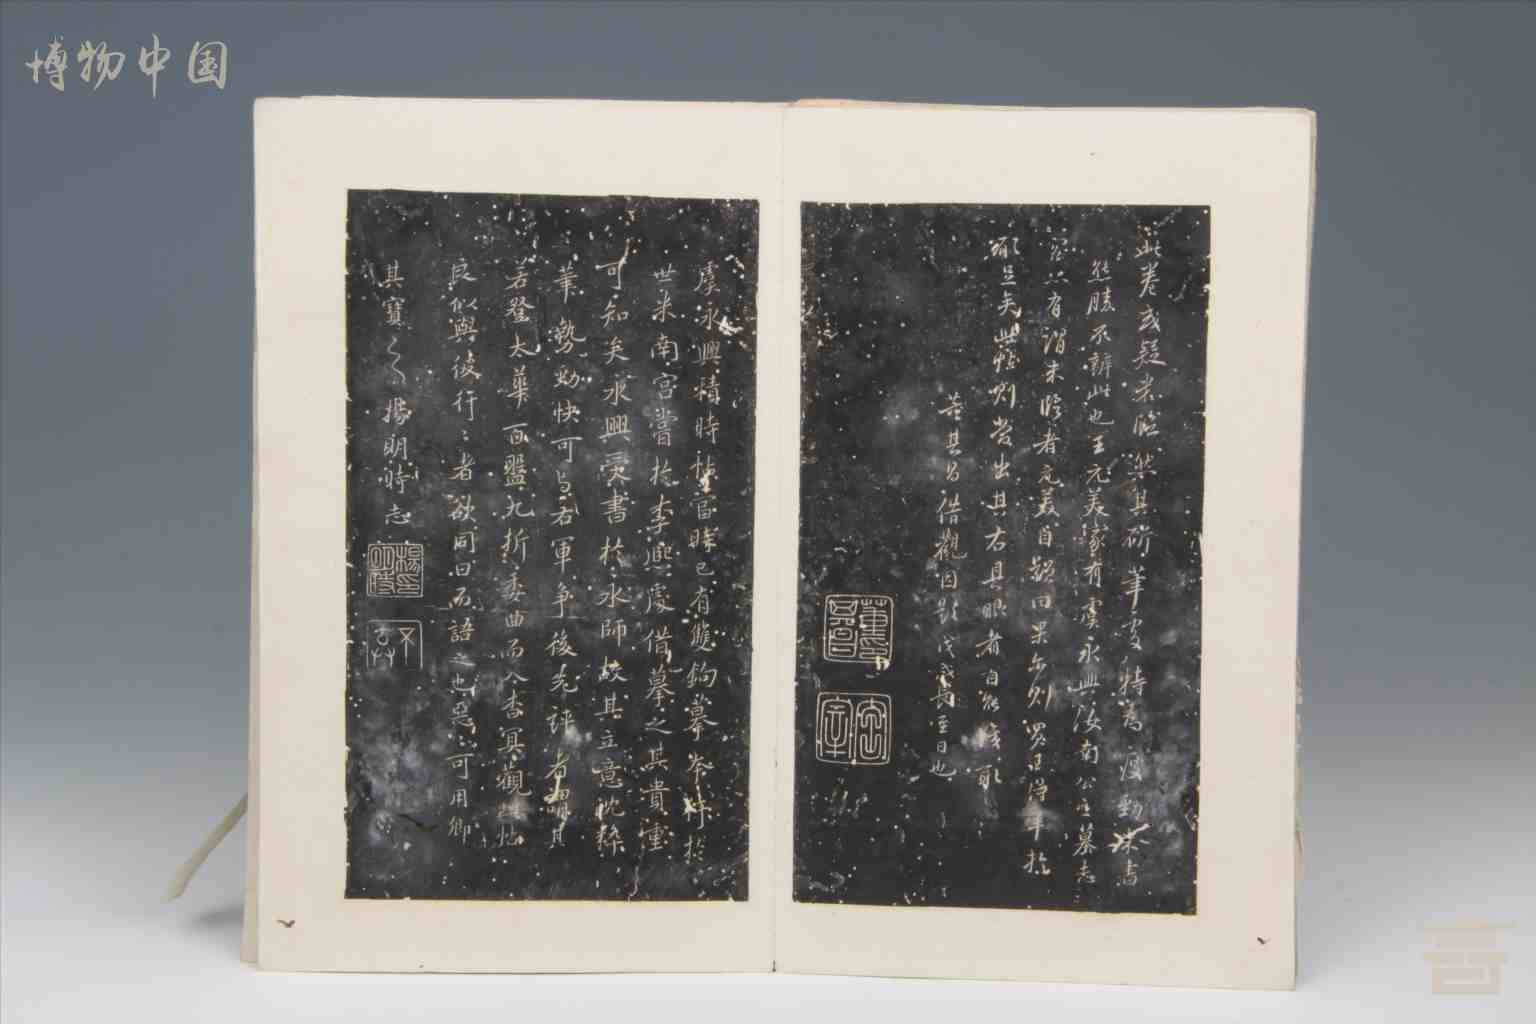 博物中国
此卷或疑米临然其所笔安特為瘦勁米書
熊勝不辨此也王元美家有虞永興汝南公主墓志
亦有謂米臨者元美自題曰果爾則買王得羊於
願足矣此卷則當出其右具眼者自能識取
董其昌借觀因題戊戌長至日也
虞永興積時帖當時已有雙鉤摹本行於
世米南宮嘗於李熙處借摹之其貴重
可知矣永興受書於永師故其立意沈粹
筆勢勁快可与右軍爭後先評者謂其
若登太華百盤九折委曲而入杳冥觀此帖
良似與彼行行者欲同日而語之也惡惡可用卿
其寶之之楊明時志